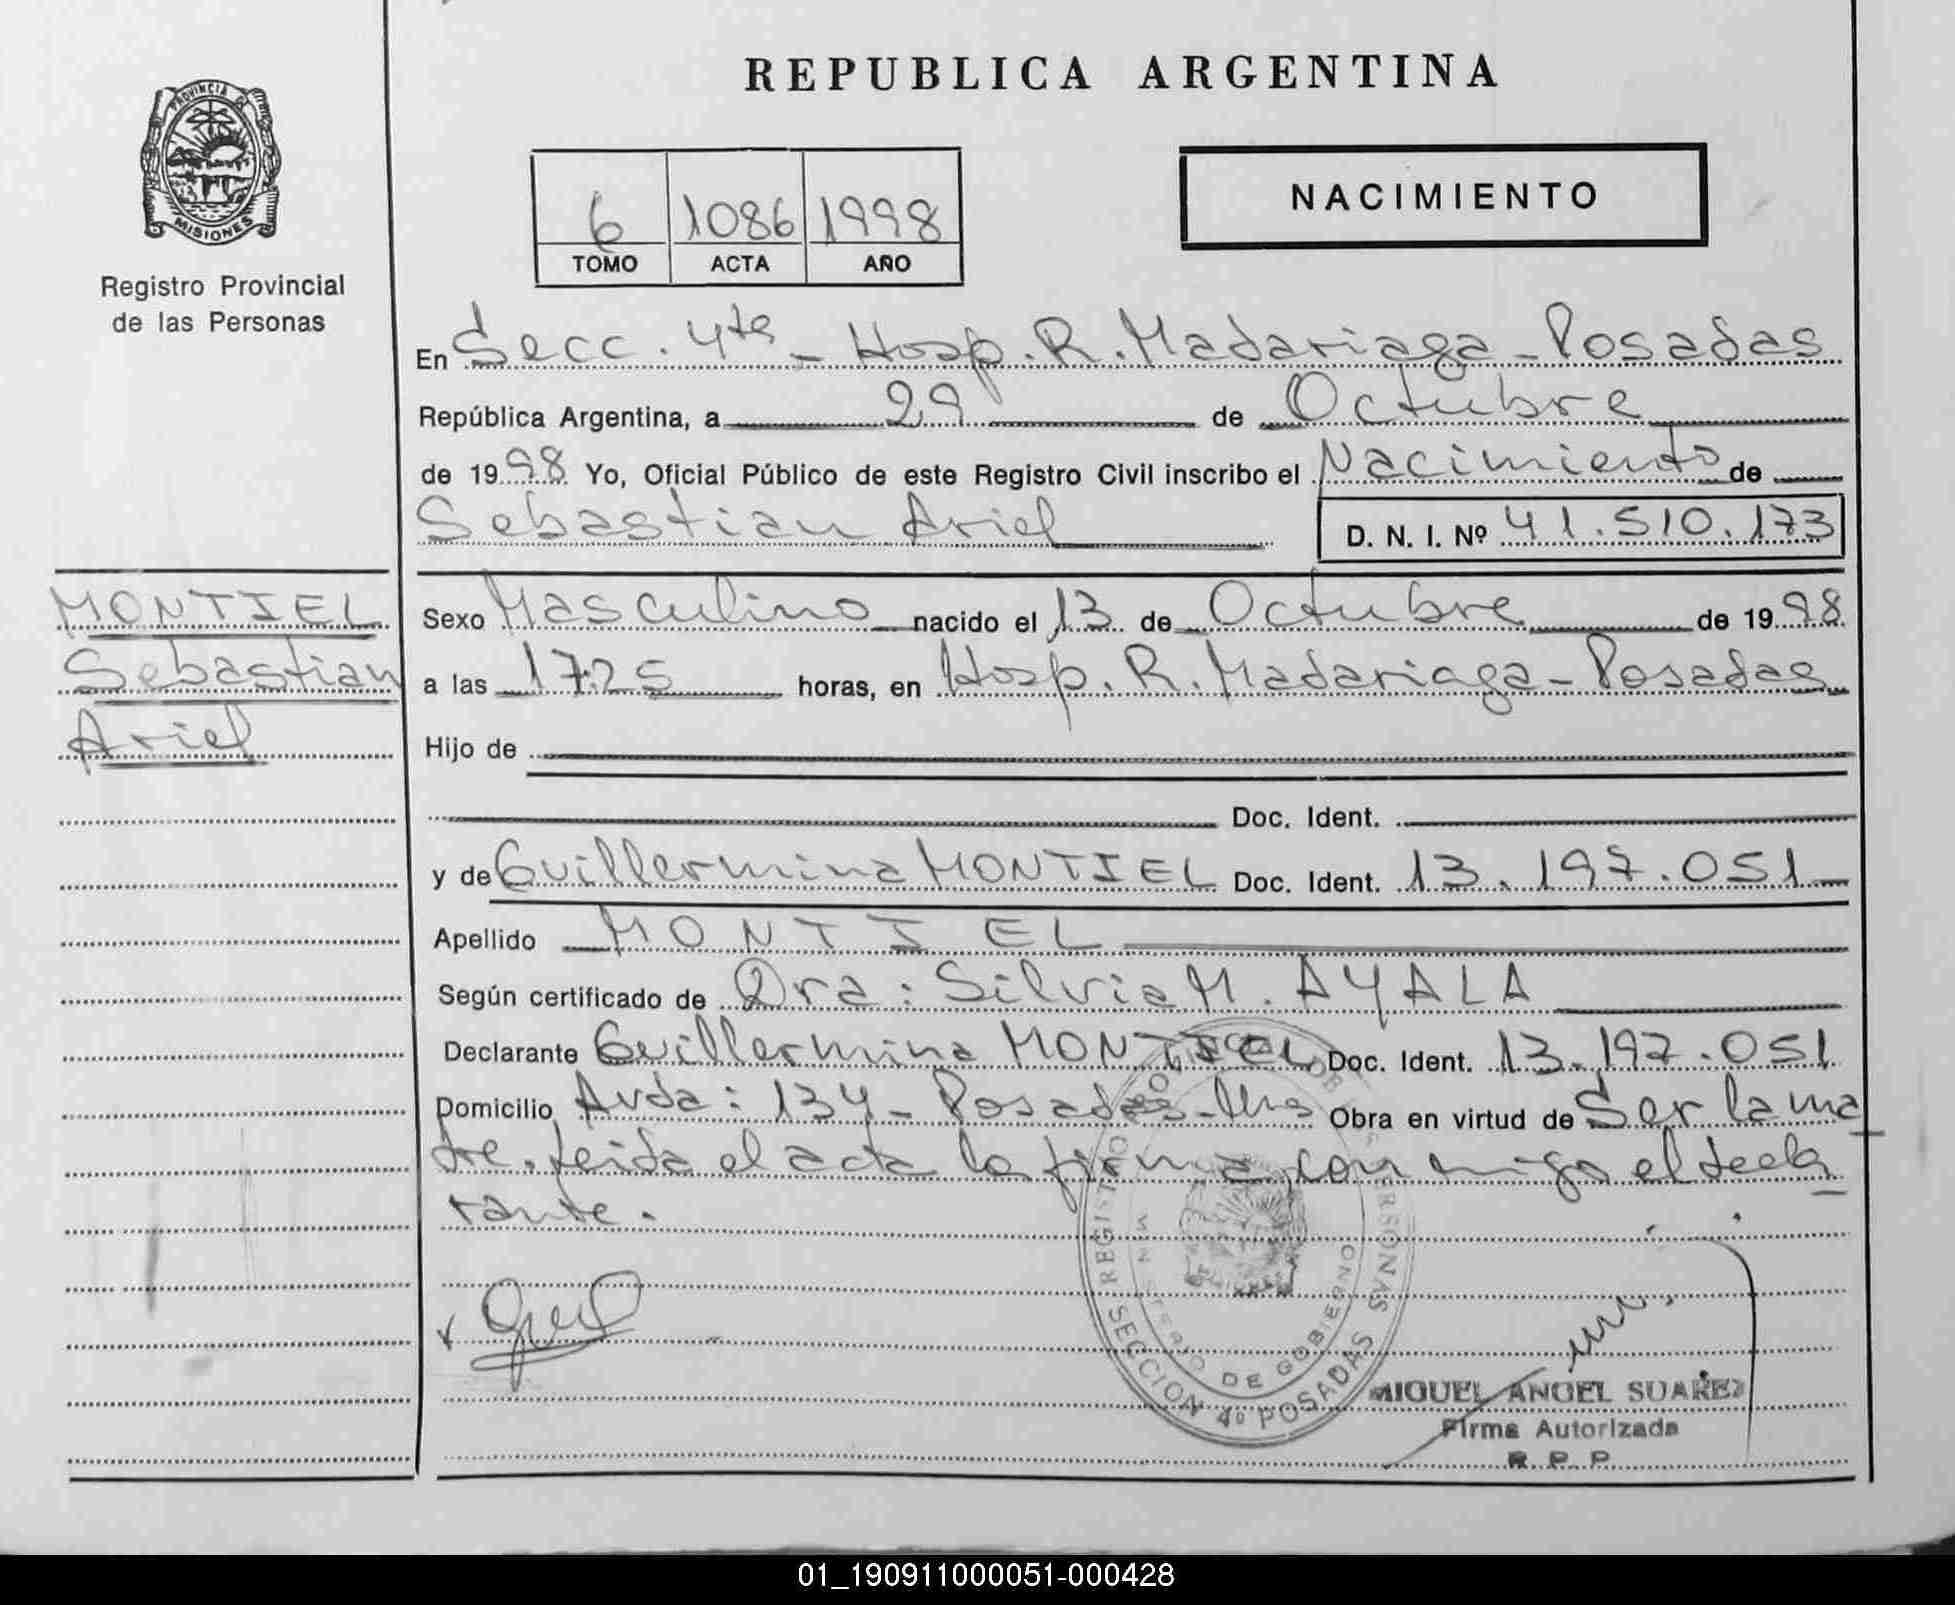 REPUBLICA ARGENTINA
PROVINCIA DE
MISIONES
Registro Provincial
de las Personas
6 1086 1998
TOMO ACTA AÑO
NACIMIENTO
En Secc. 4ta - Hosp. R. Madariaga - Posadas
República Argentina, a 29 de Octubre
de 1998 Yo, Oficial Público de este Registro Civil inscribo el Nacimiento de
Sebastian Ariel D. N. I. Nº 41.510.173
MONTIEL
Sebastian
Ariel
Sexo Masculino nacido el 13 de Octubre de 1998
a las 17.25 horas, en Hosp. R. Madariaga - Posadas
Hijo de
Doc. Ident.
y de Guillermina MONTIEL Doc. Ident. 13.197.051
Apellido MONTIEL
Según certificado de Dra: Silvia M. AYALA
Declarante Guillermina MONTIEL Doc. Ident. 13.197.051
Domicilio Avda: 134 - Posadas - Mnes Obra en virtud de Ser la ma
dre. Leida el acta la firma conmigo el decla
rante.
SECCION 4º POSADAS
MINISTERIO DE GOBIERNO
MIGUEL ANGEL SUAREZ
Firma Autorizada
R. P. P.
01_190911000051-000428